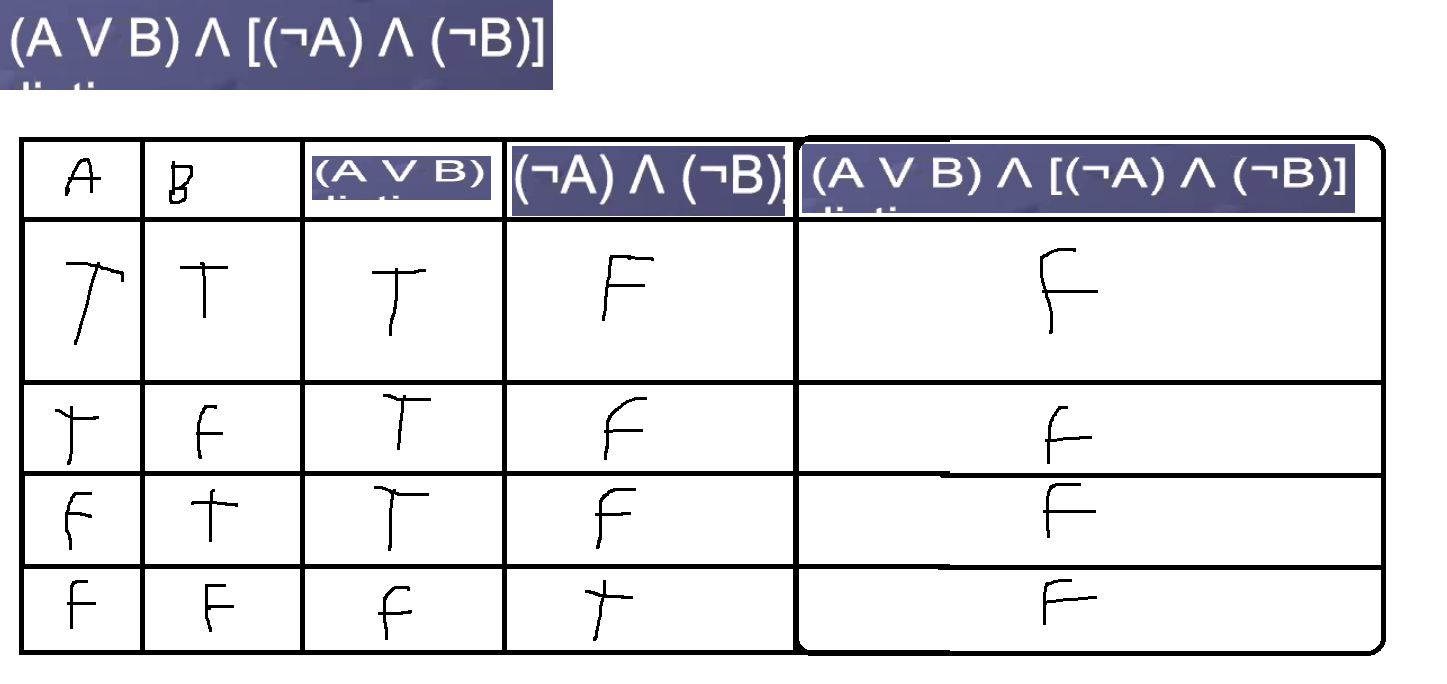 (A V B) Λ [(¬A) Λ (¬B)]
A B (A V B) (¬A) Λ (¬B) (A V B) Λ [(¬A) Λ (¬B)]
T T T F F
T F T F F
F T T F F
F F F T F